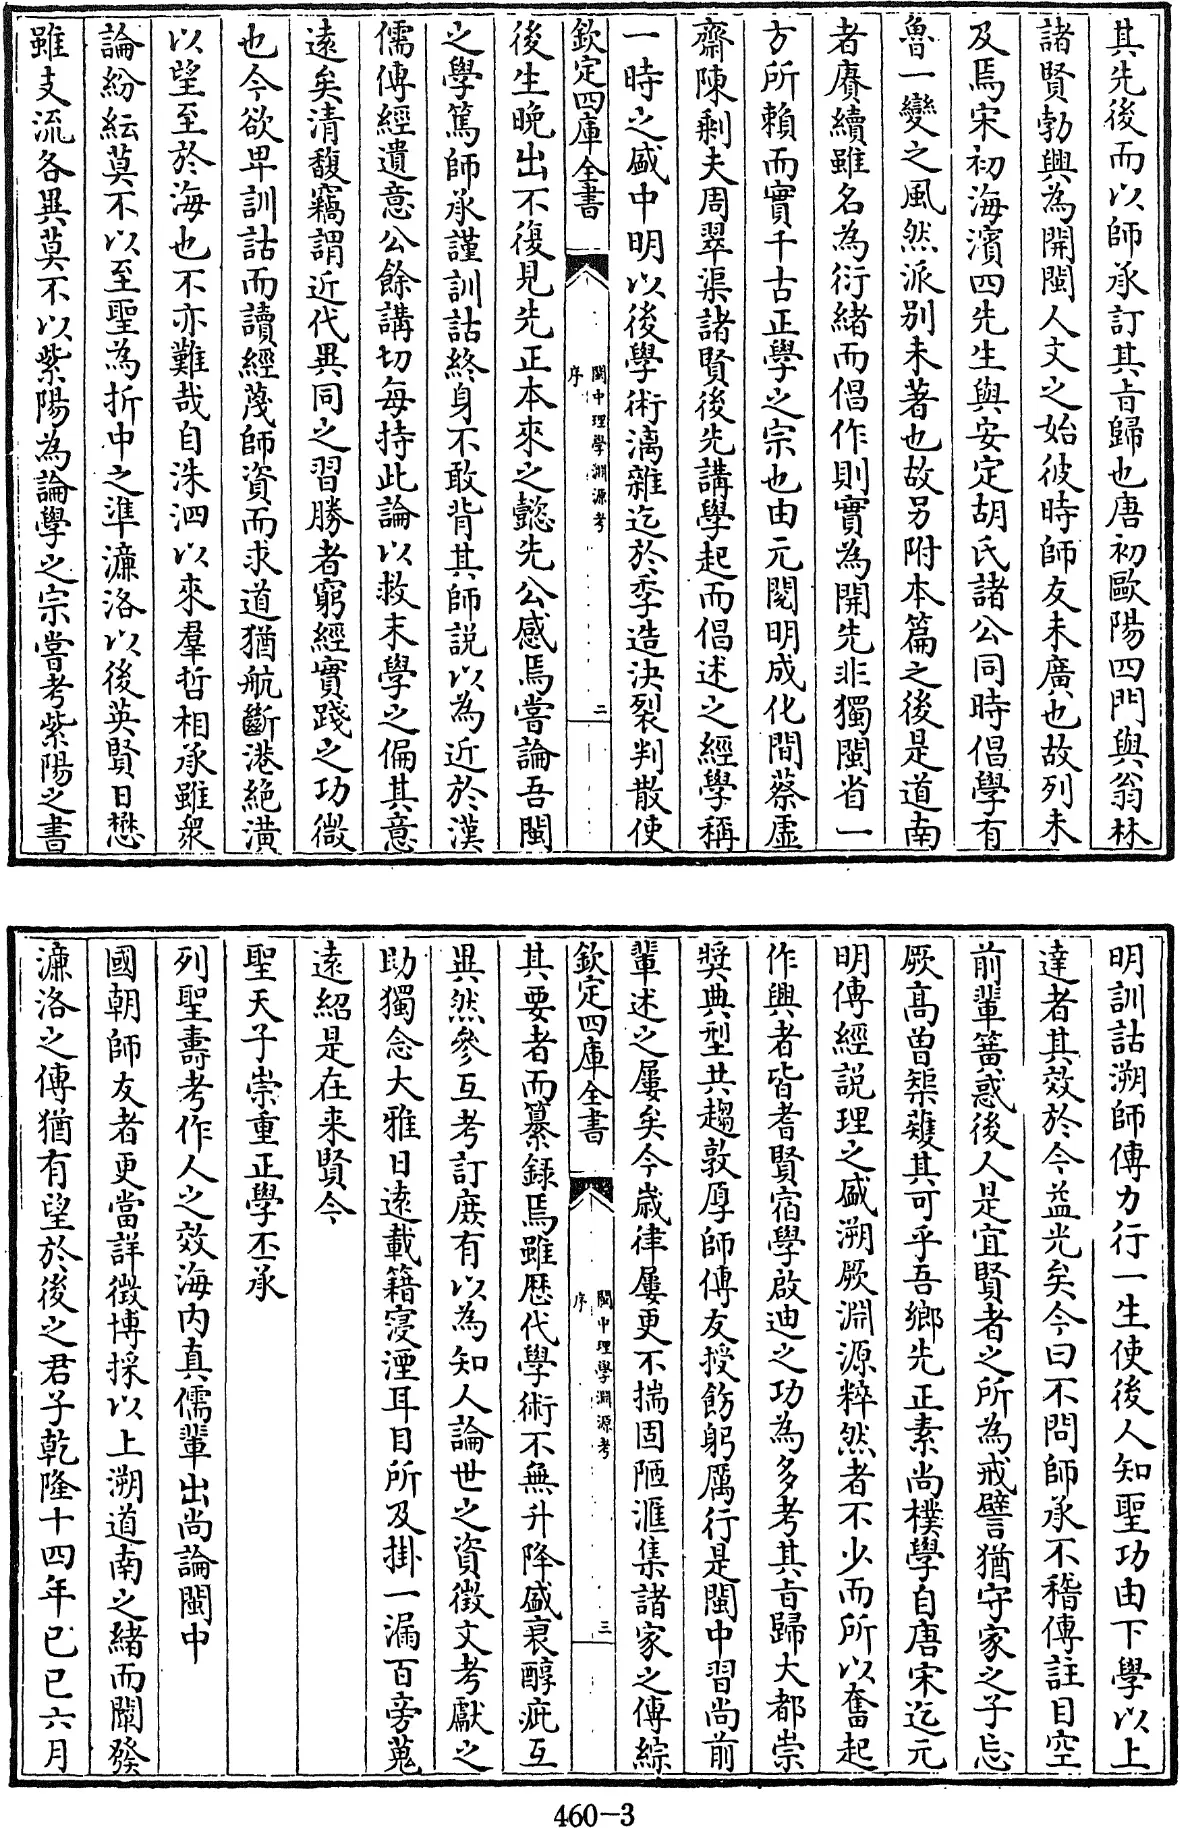 其先後而以師承訂其㫖歸也唐初歐陽四門與翁林
諸賢勃興為開閩人文之始彼時師友未廣也故列未
及焉宋初海濱四先生與安定胡氏諸公同時倡學有
魯一變之風然派别未著也故另附本篇之後是道南
者賡續雖名為衍緒而倡作則實為開先非獨閩省一
方所賴而實千古正學之宗也由元閱明成化間蔡虛
齋陳剩夫周翠渠諸賢後先講學起而倡述之經學稱
一時之盛中明以後學術漓雜迄於季造決裂判散使
欽定四庫全書
閩中理學淵源考
序
二
後生晚出不復見先正本來之懿先公感焉嘗論吾閩
之學篤師承謹訓詁終身不敢背其師説以為近於漢
儒傳經遺意公餘講切每持此論以救末學之偏其意
逺矣清馥竊謂近代異同之習勝者窮經實踐之功微
也今欲卑訓詁而讀經蔑師資而求道猶航斷港絶潢
以望至於海也不亦難哉自洙泗以來羣哲相承雖衆
論紛紜莫不以至聖為折中之準濂洛以後英賢日懋
雖支流各異莫不以紫陽為論學之宗嘗考紫陽之書
明訓詁溯師傳力行一生使後人知聖功由下學以上
達者其效於今益光矣今曰不問師承不稽傳註目空
前輩簧惑後人是宜賢者之所為戒譬猶守家之子忘
厥高曾榘矱其可乎吾鄉先正素尚樸學自唐宋迄元
明傳經説理之盛溯厥淵源粹然者不少而所以奮起
作興者皆耆賢宿學啟迪之功為多考其㫖歸大都崇
奬典型共趨敦厚師傳友授飭躬厲行是閩中習尚前
輩述之屢矣今歲律屢更不揣固陋滙集諸家之傳綜
欽定四庫全書
閩中理學淵源考
序
三
其要者而纂錄焉雖歷代學術不無升降盛衰醇疵互
異然參互考訂庶有以為知人論世之資徵文考獻之
助獨念大雅日逺載籍寖湮耳目所及掛一漏百旁蒐
逺紹是在来賢今
聖天子崇重正學丕承
列聖壽考作人之效海内真儒輩出尚論閩中
國朝師友者更當詳徴博採以上溯道南之緒而闡發
濂洛之傳猶有望於後之君子乾隆十四年己巳六月
460-3